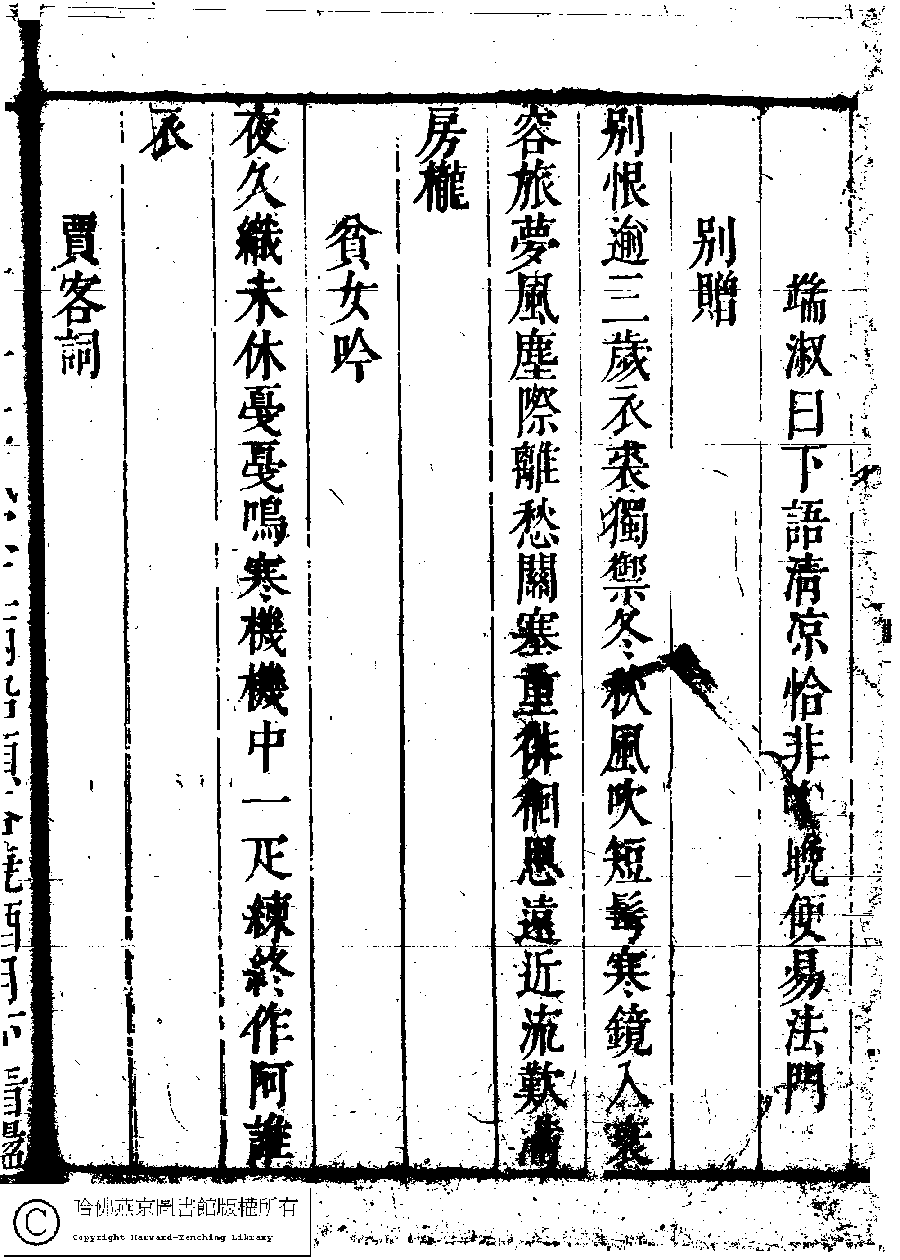 端淑曰下語清凉恰非晚便易法門
別贈
別恨逾三歲衣裘獨禦冬秋風吹短髩寒鏡入衰
容旅夢風塵際離愁關塞重徘徊思遠近流歎滿
房櫳
貧女吟
夜久織未休戞戞鳴寒機機中一疋練終作阿誰
衣
賈客詞
哈佛燕京圖書館版權所有
Copyright Harvard-Yenching Library